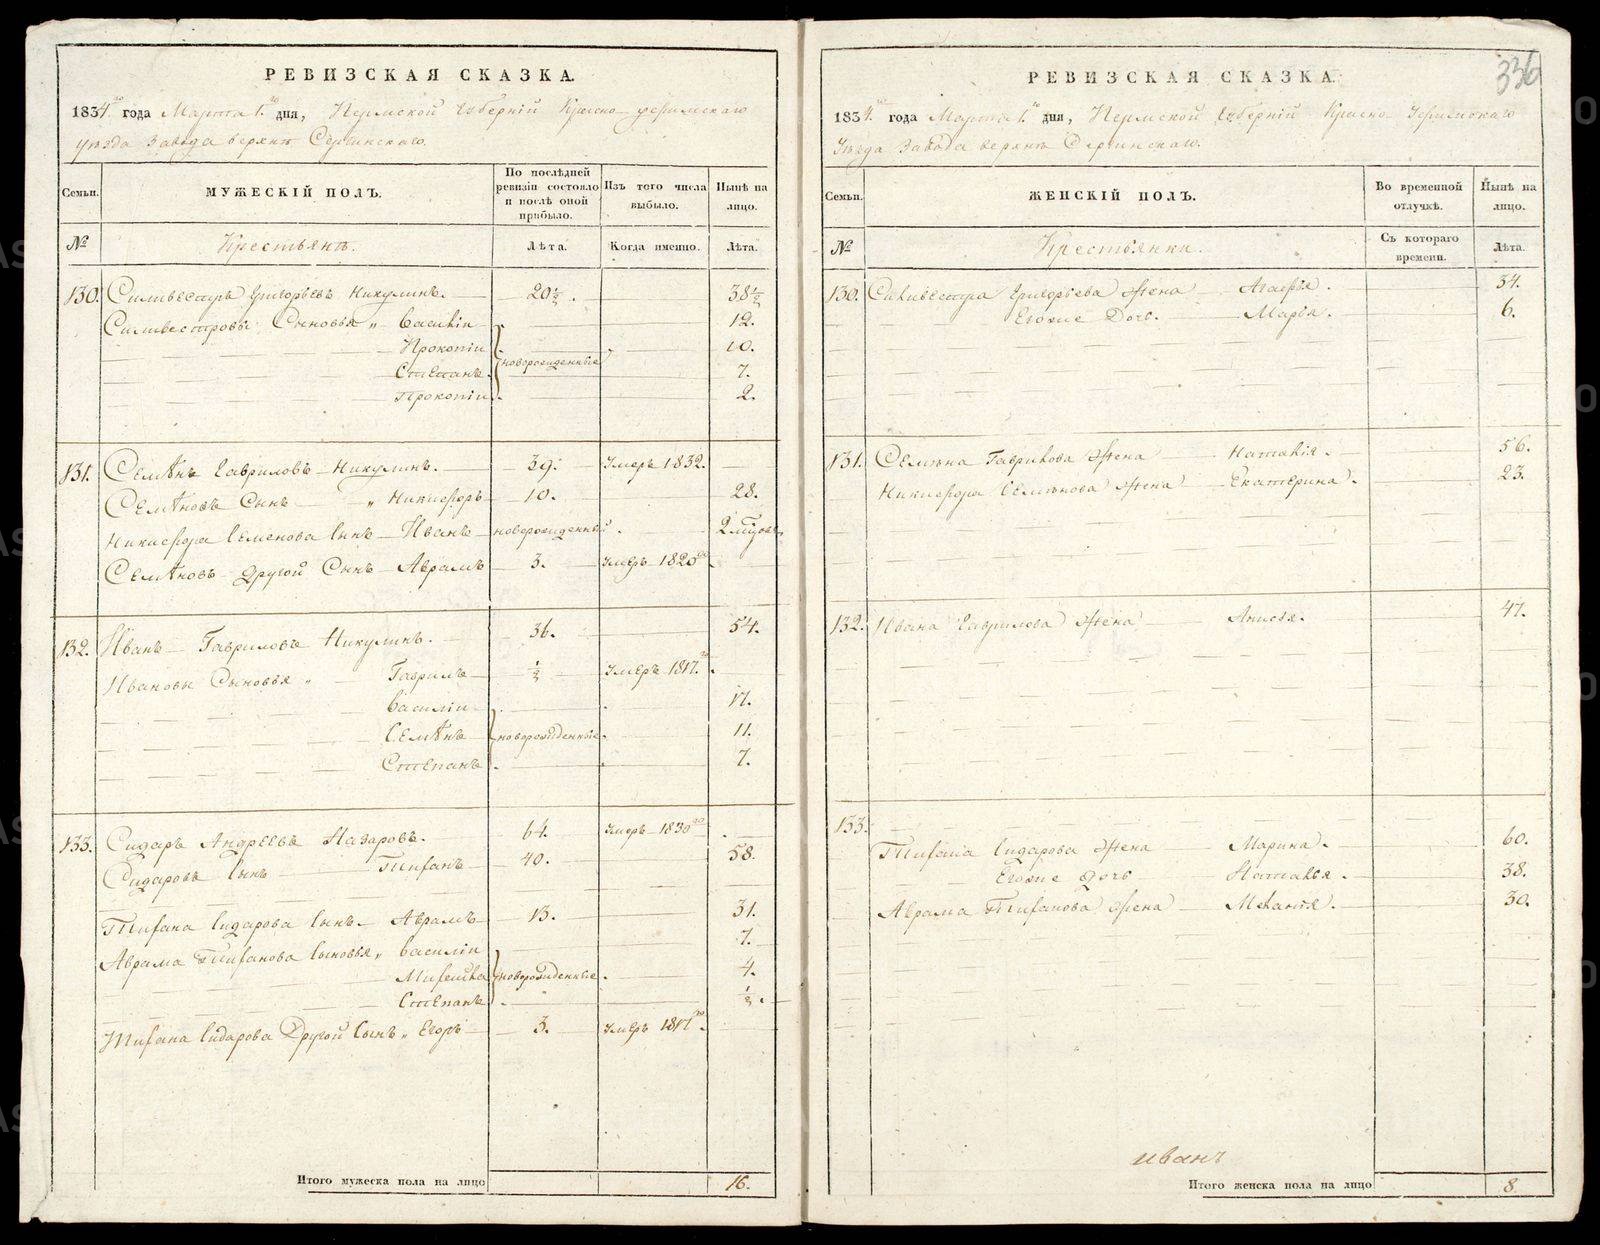 РЕВИЗСКАЯ СКАЗКА.
1834го года Марта 1го дня, Пермской Губерній Красно уфимскаго
уѣзда Завода верхнѣ Сергинскаго.
Семьи. МУЖЕСКІЙ ПОЛЪ. По послѣдней ревизіи состояло и послѣ оной прибыло. Изъ того числа выбыло. Нынѣ на лицо.
№ Крестьянъ. Лѣта. Когда именно. Лѣта.
130. Силивестръ Григорьевъ Никулинъ. 20½. 38½
Силивестровы Сыновья „ Василіи 12.
Прокопіи 10.
новорожденные
Степанъ 7.
Прокопіи 2.
131. Семѣнъ Гавриловъ Никулинъ. 39. Умеръ 1832.
Семѣновъ Сынъ „ Никифоръ 10. 28.
Никифора Семенова Сынъ Иванъ новорожденный. 2
Семѣновъ другой Сынъ Аврамъ 3. Умеръ 1825го.
132. Иванъ Гавриловъ Никулинъ. 36. 54.
Ивановы Сыновья „ Гаврилъ ½ Умеръ 1817.го
Василіи 17.
Семѣнъ новорожденные. 11.
Степанъ 7.
133. Сидаръ Андреевъ Назаровъ. 64. Умеръ 1830го
Сидаровъ Сынъ Тифанъ 40. 58.
Тифана Сидарова Сынъ Аврамъ 13. 31.
Аврама Тифанова Сыновья „ Василіи 7.
новорожденные. 4.
Степанъ ½.
Тифана Сидарова Другой Сынъ „ Егоръ 3. Умеръ 1817го.
Итого мужеска пола на лицо 16.
336
РЕВИЗСКАЯ СКАЗКА.
1834.го года Марта 1.го дня, Пермской Губерній Красно Уфимскаго
Уѣзда Завода верхнѣ Сергинскаго.
Семьи. ЖЕНСКІЙ ПОЛЪ. Во временной отлучкѣ. Нынѣ на лицо.
№ Крестьянки. Съ котораго времени. Лѣта.
130. Силивестра Григорьева Жена Агафья. 34.
Егоже Дочь. Марья. 6.
131. Семѣна Гаврилова Жена Наталія. 56.
Никифора Семѣнова Жена Екатерина. 23.
132. Ивана Гаврилова Жена Анисья. 47.
133.
Тифана Сидарова Жена Марина. 60.
Егоже дочь Наталья. 38.
Аврама Тифанова Жена Меланья. 30.
иванъ
Итого женска пола на лицо 8